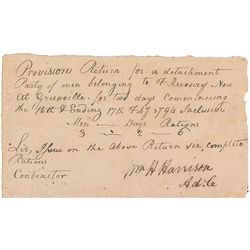 Provision Return for a detachment
Party of men belonging to Ft Recovery Now
At Greenville. for two days commencing
the 16th & Ending 17th Feby 1794 Inclusive
Men Days Rations
3 — 2 — 6
Sir, Issue on the above Return six complete
Rations
Contractor Wm H Harrison
A d C